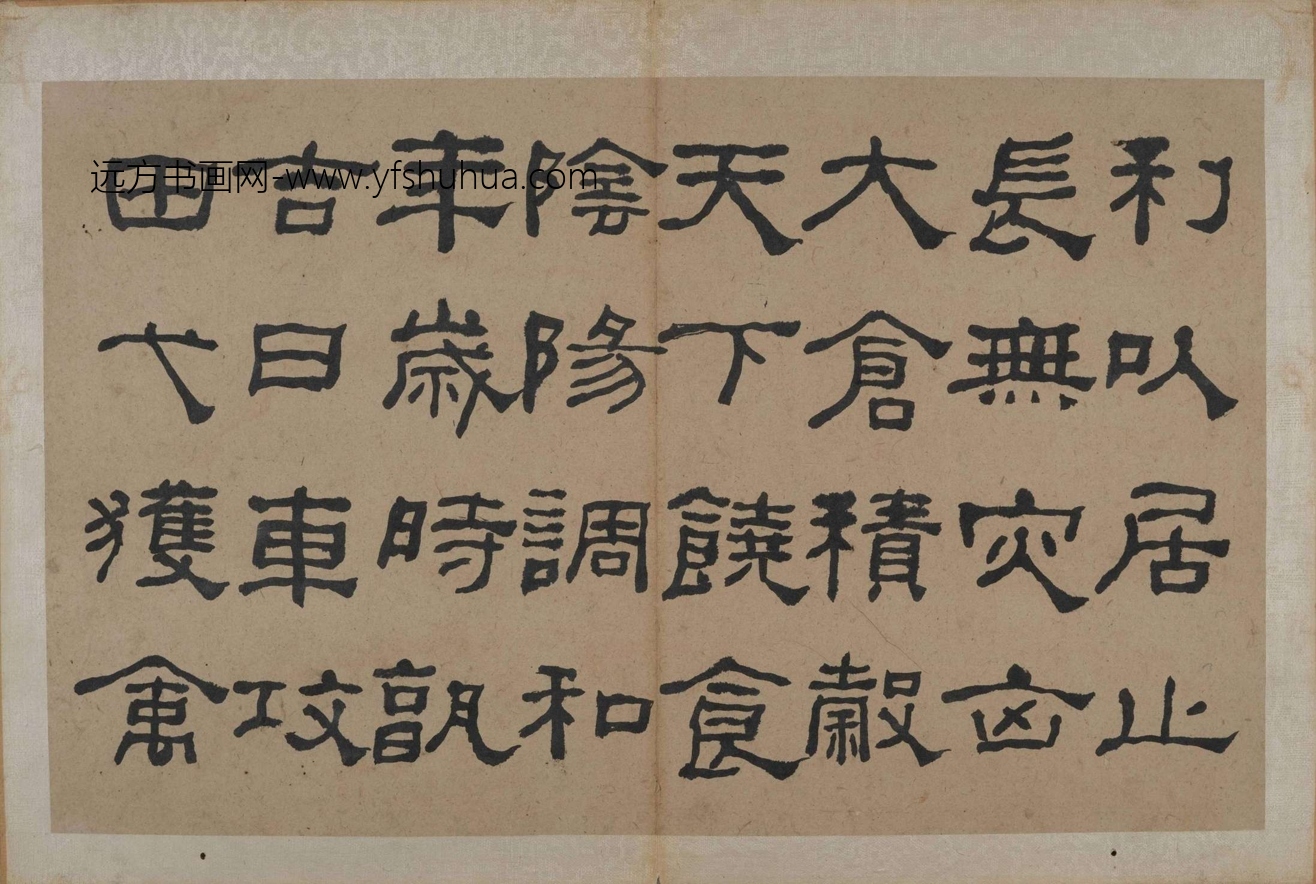 利以居止
長無灾凶
大倉積穀
天下饒食
陰陽調和
年歲時孰
吉日車攻
田弋獲禽
远方书画网-www.yfshuhua.com